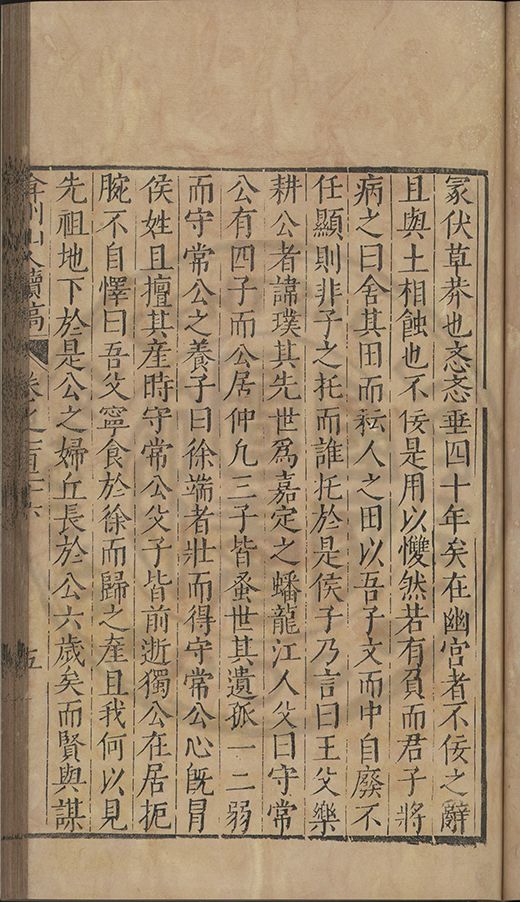 冢伏草莽也忞忞垂四十年矣在幽宫者不佞之辭
且與土相蝕也不佞是用以戄然若有負而君子將
病之曰舍其田而耘人之田以吾子文而中自廢不
任顯則非子之托而誰托於是侯子乃言曰王父樂
耕公者諱璞其先世爲嘉定之蟠龍江人父曰守常
公有四子而公居仲凢三子皆蚤世其遺孤一二弱
而守常公之養子曰徐端者壯而得守常公心旣冐
侯姓且擅其産時守常公父子皆前逝獨公在居扼
腕不自懌曰吾父寧食於徐而歸之産且我何以見
先祖地下於是公之婦丘長於公六歲矣而賢與謀
弇州山人續稿
卷之一百二十六
五